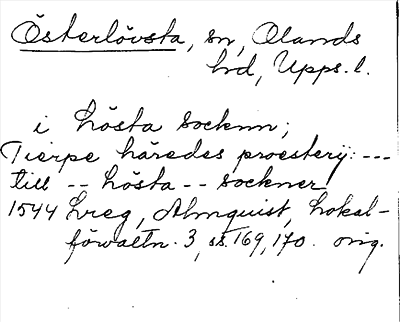 Österlövsta, sn, Olands
hd, Upps. l.
i Lösta socknn;
Tierpe häredes proesterij: ---
till -- Lösta -- sockner
1544 Lreg, Almquist, Lokal-
förvaltn. 3, ss. 169, 170. orig.